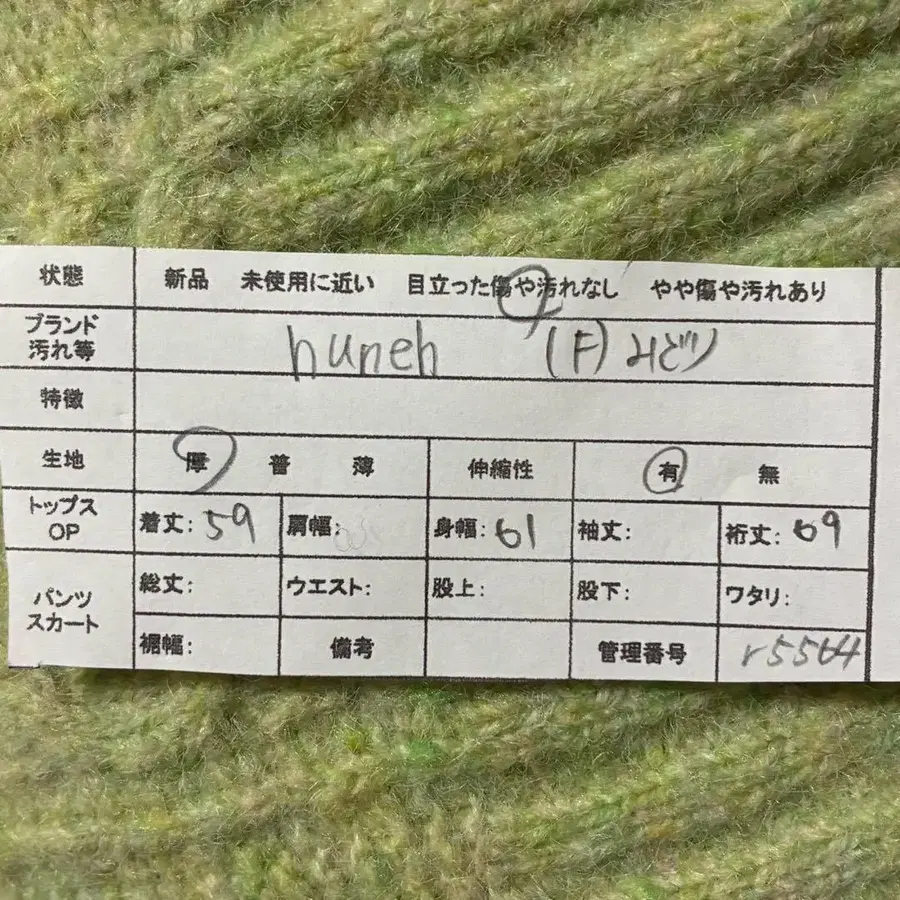 状態 新品 未使用に近い 目立った傷や汚れなし やや傷や汚れあり
ブランド 汚れ等 huneh (F) みどり
特徴
生地 厚 普 薄 伸縮性 有 無
トップス OP 着丈: 59 肩幅: 身幅: 61 袖丈: 裄丈: 69
パンツ スカート 総丈: ウエスト: 股上: 股下: ワタリ:
裾幅: 備考 管理番号 r5564